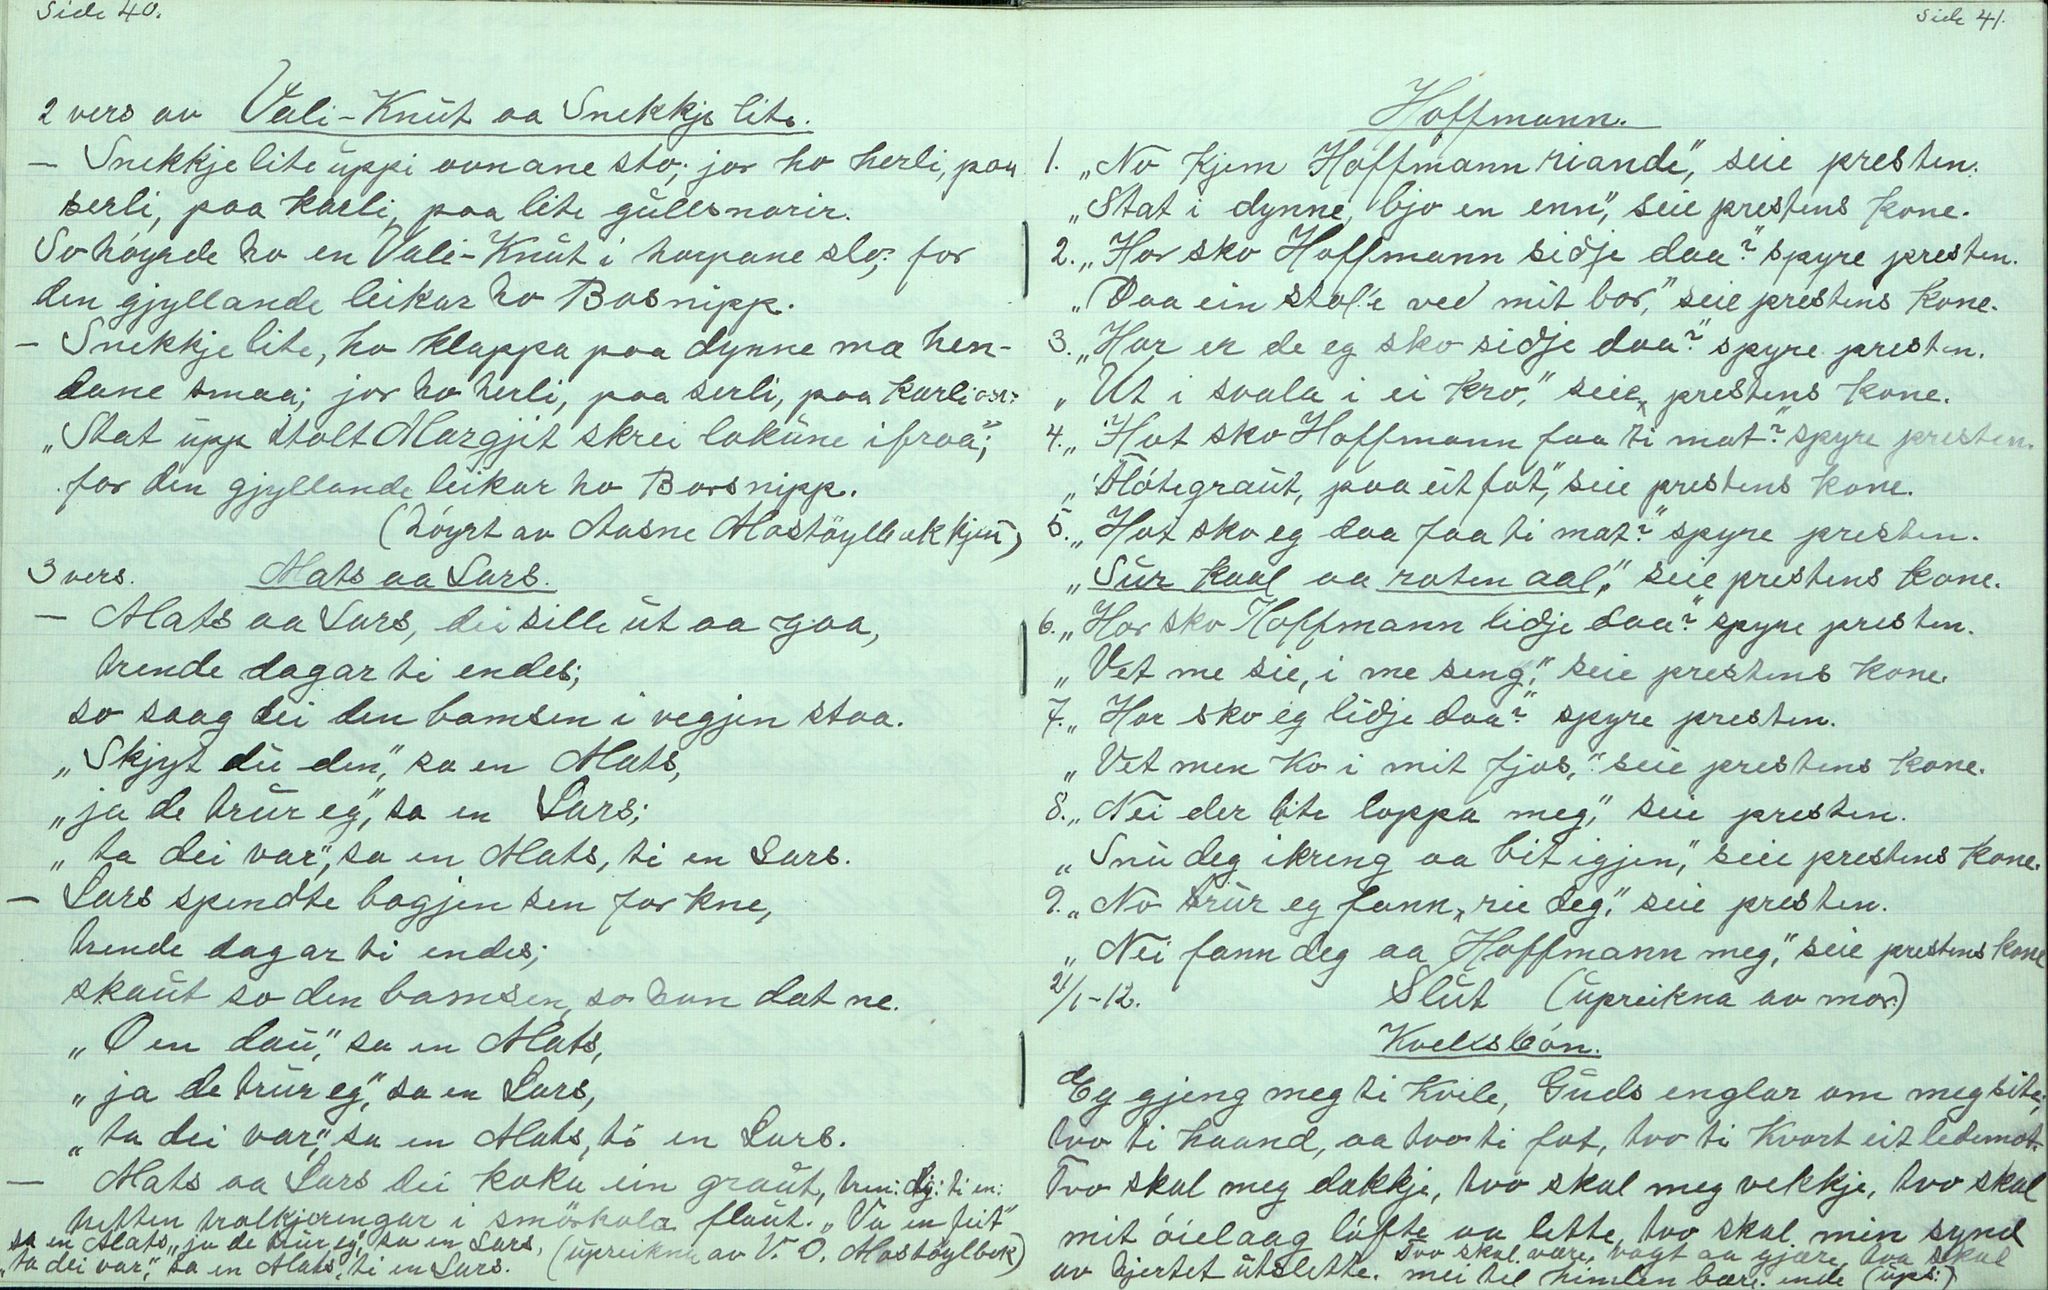 Side 40.
2 vers av Vali-Knut aa Snekkje lite.
— Snekkje lite uppi ovnane sto; jor ho herli, paa
serli, paa karli, paa lite gullsnarir.
So höyrde ho en Vali-Knut i harpane slo; for
den gjyllande leikar ho Bosnipp.
— Snekkje lite, ho klappa paa dynne mæ hen-
dane smaa; jor ho herli, paa serli, paa karli osv:
„Stat upp stolt Margjit skrei lokune ifraa";
for den gjyllande leikar ho Borsnipp.
(höyrt av Aasne Mostöylbakkjen)
3 vers. Mats aa Lars.
— Mats aa Lars, dei sille ut aa gaa,
trende dagar ti endes;
so saag dei den bamsen i vegjen staa.
„Skjyt du den", sa en Mats,
„ja de trur eg", sa en Lars;
„ta dei var", sa en Mats, ti en Lars.
— Lars spendte bogjen sen for kne,
trende dagar ti endes;
skaut so den bamsen, so han dat ne.
„O en dau", sa en Mats,
„ja de trur eg", sa en Lars,
„ta dei var", sa en Mats, ti en Lars.
— Mats aa Lars dei koka ein graut, tren: dg: ti en:
tretten tralkjeringar i smörkola flaut. „Va en feit"
sa en Mats „ja de trur eg", sa en Lars,
„ta dei var", sa en Mats, ti en Lars. (upreikna av V. O. Mostöylbek)
Side 41.
Hoffmann.
1. „No kjem Hoffmann riande", seie presten.
„Stat i dynne, bjo en enn", seie prestens kone.
2. „Hor sko Hoffmann sidje daa?" spyre presten.
„Paa ein stol'e ved mit bor," seie prestens kone.
3. „Hor er de eg sko sidje daa?" spyre presten.
„Ut i svala i ei kro," seie prestens kone.
4. „Hot sko Hoffmann faa ti mat?" spyre presten.
„Flötegraut, paa eit fat," seie prestens kone.
5. „Hot sko eg daa faa ti mat?" spyre presten.
„Sur kaal aa roten aal," seie prestens kone.
6. „Hor sko Hoffmann lidje daa?" spyre presten.
„Vet me sie, i me seng," seie prestens kone.
7. „Hor sko eg lidje daa?" spyre presten.
„Vet men ko i mit fjos," seie prestens kone.
8. „Nei der bite loppa meg," seie presten.
„Snu deg ikring aa bit igjen," seie prestens kone.
9. „No trur eg fann, rie deg," seie presten.
„Nei fann deg aa Hoffmann meg," seie prestens kone
21/1-12. Slut (upreikna av mor.)
Kveldsbön.
Eg gjeng meg ti kvile, Guds englar om meg site;
tvo ti haand, aa tvo ti fot, tvo ti kvart eit ledemot.
Tvo skal meg dekkje, tvo skal meg vekkje, tvo skal
mit öielaag löfte aa lette, tvo skal min synd
av hjertet utslette. Tvo skal være vagt aa gjære, tvo skal
mei til himlen bære. ende (ups:)